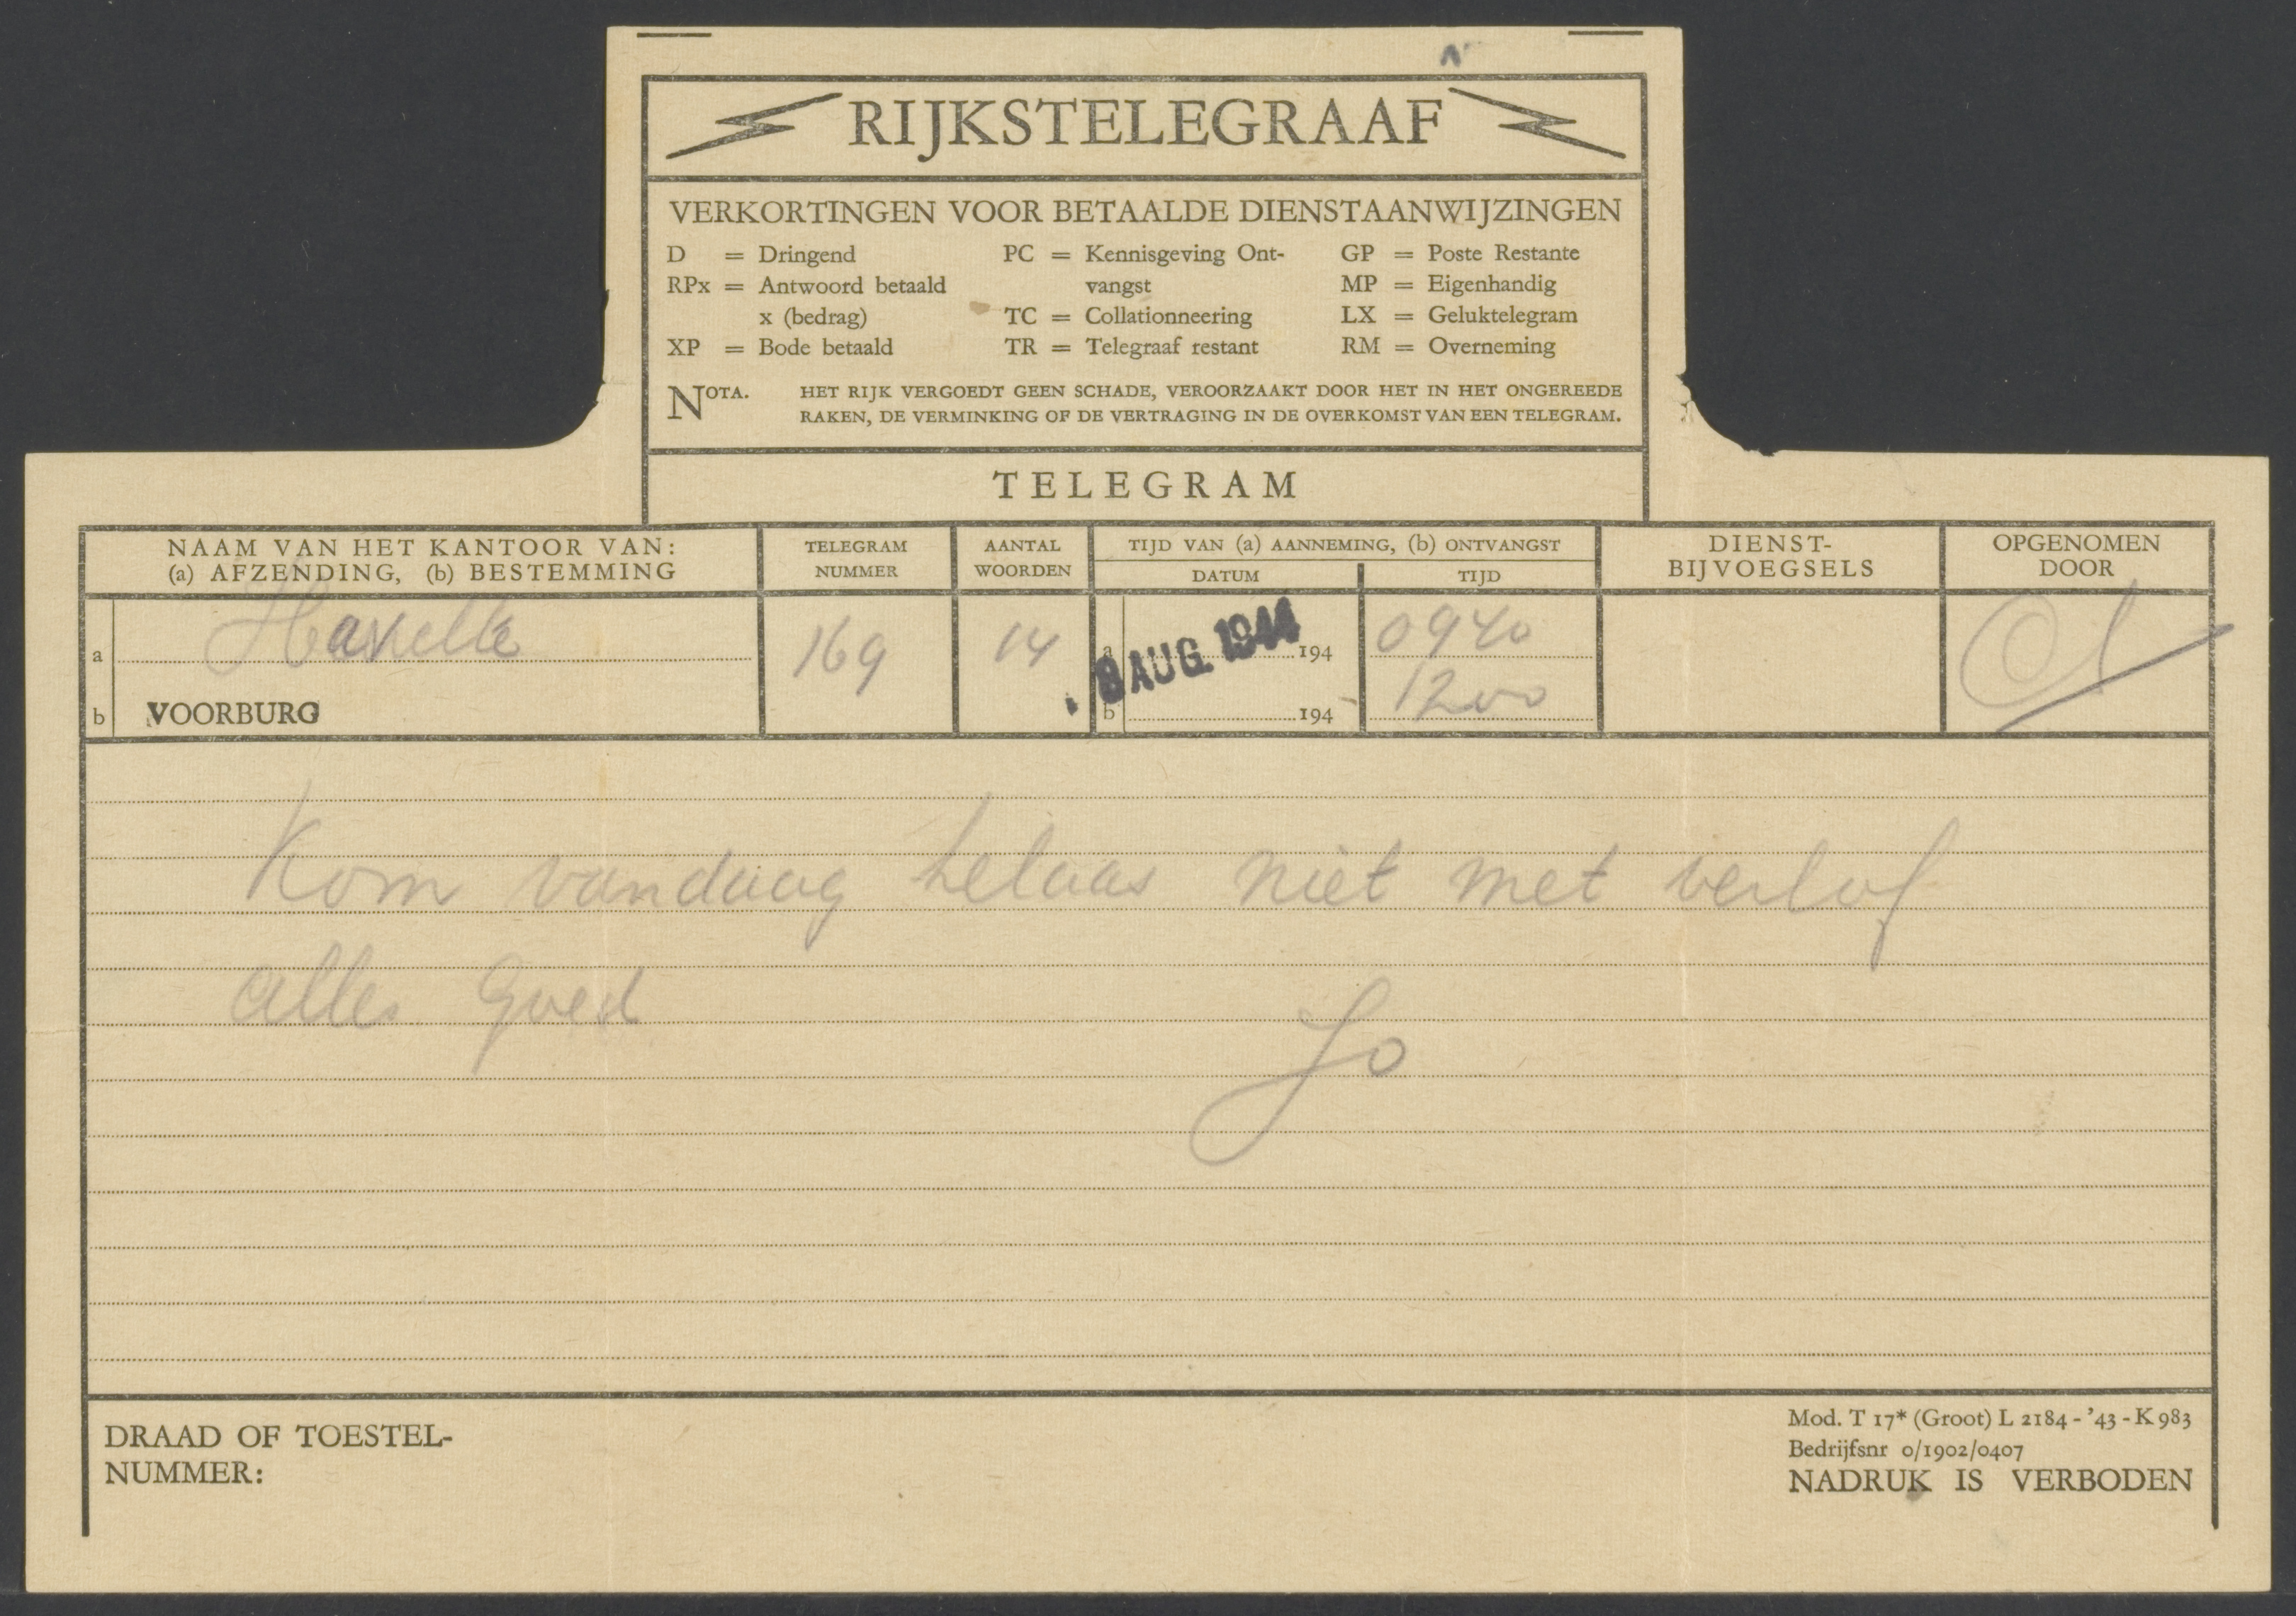 RIJKSTELEGRAAF
VERKORTINGEN VOOR BETAALDE DIENSTAANWIJZINGEN
D = Dringend
RPx = Antwoord betaald
x (bedrag)
XP = Bode betaald
PC = Kennisgeving Ont-
vangst
TC = Collationneering
TR = Telegraaf restant
GP = Poste Restante
MP = Eigenhandig
LX = Geluktelegram
RM = Overneming
NOTA. HET RIJK VERGOEDT GEEN SCHADE, VEROORZAAKT DOOR HET IN HET ONGEREEDE
RAKEN, DE VERMINKING OF DE VERTRAGING IN DE OVERKOMST VAN EEN TELEGRAM.
TELEGRAM
NAAM VAN HET KANTOOR VAN:
(a) AFZENDING, (b) BESTEMMING
TELEGRAM
NUMMER
AANTAL
WOORDEN
TIJD VAN (a) AANNEMING, (b) ONTVANGST
DATUM
TIJD
DIENST-
BIJVOEGSELS
OPGENOMEN
DOOR
a
169
14
a 8 AUG. 1944 194
0940
b VOORBURG
b 194
1200
Kom vandaag helaas niet met verlof
alles goed
Jo
DRAAD OF TOESTEL-
NUMMER:
Mod. T 17* (Groot) L 2184 - '43 - K 983
Bedrijfsnr 0/1902/0407
NADRUK IS VERBODEN